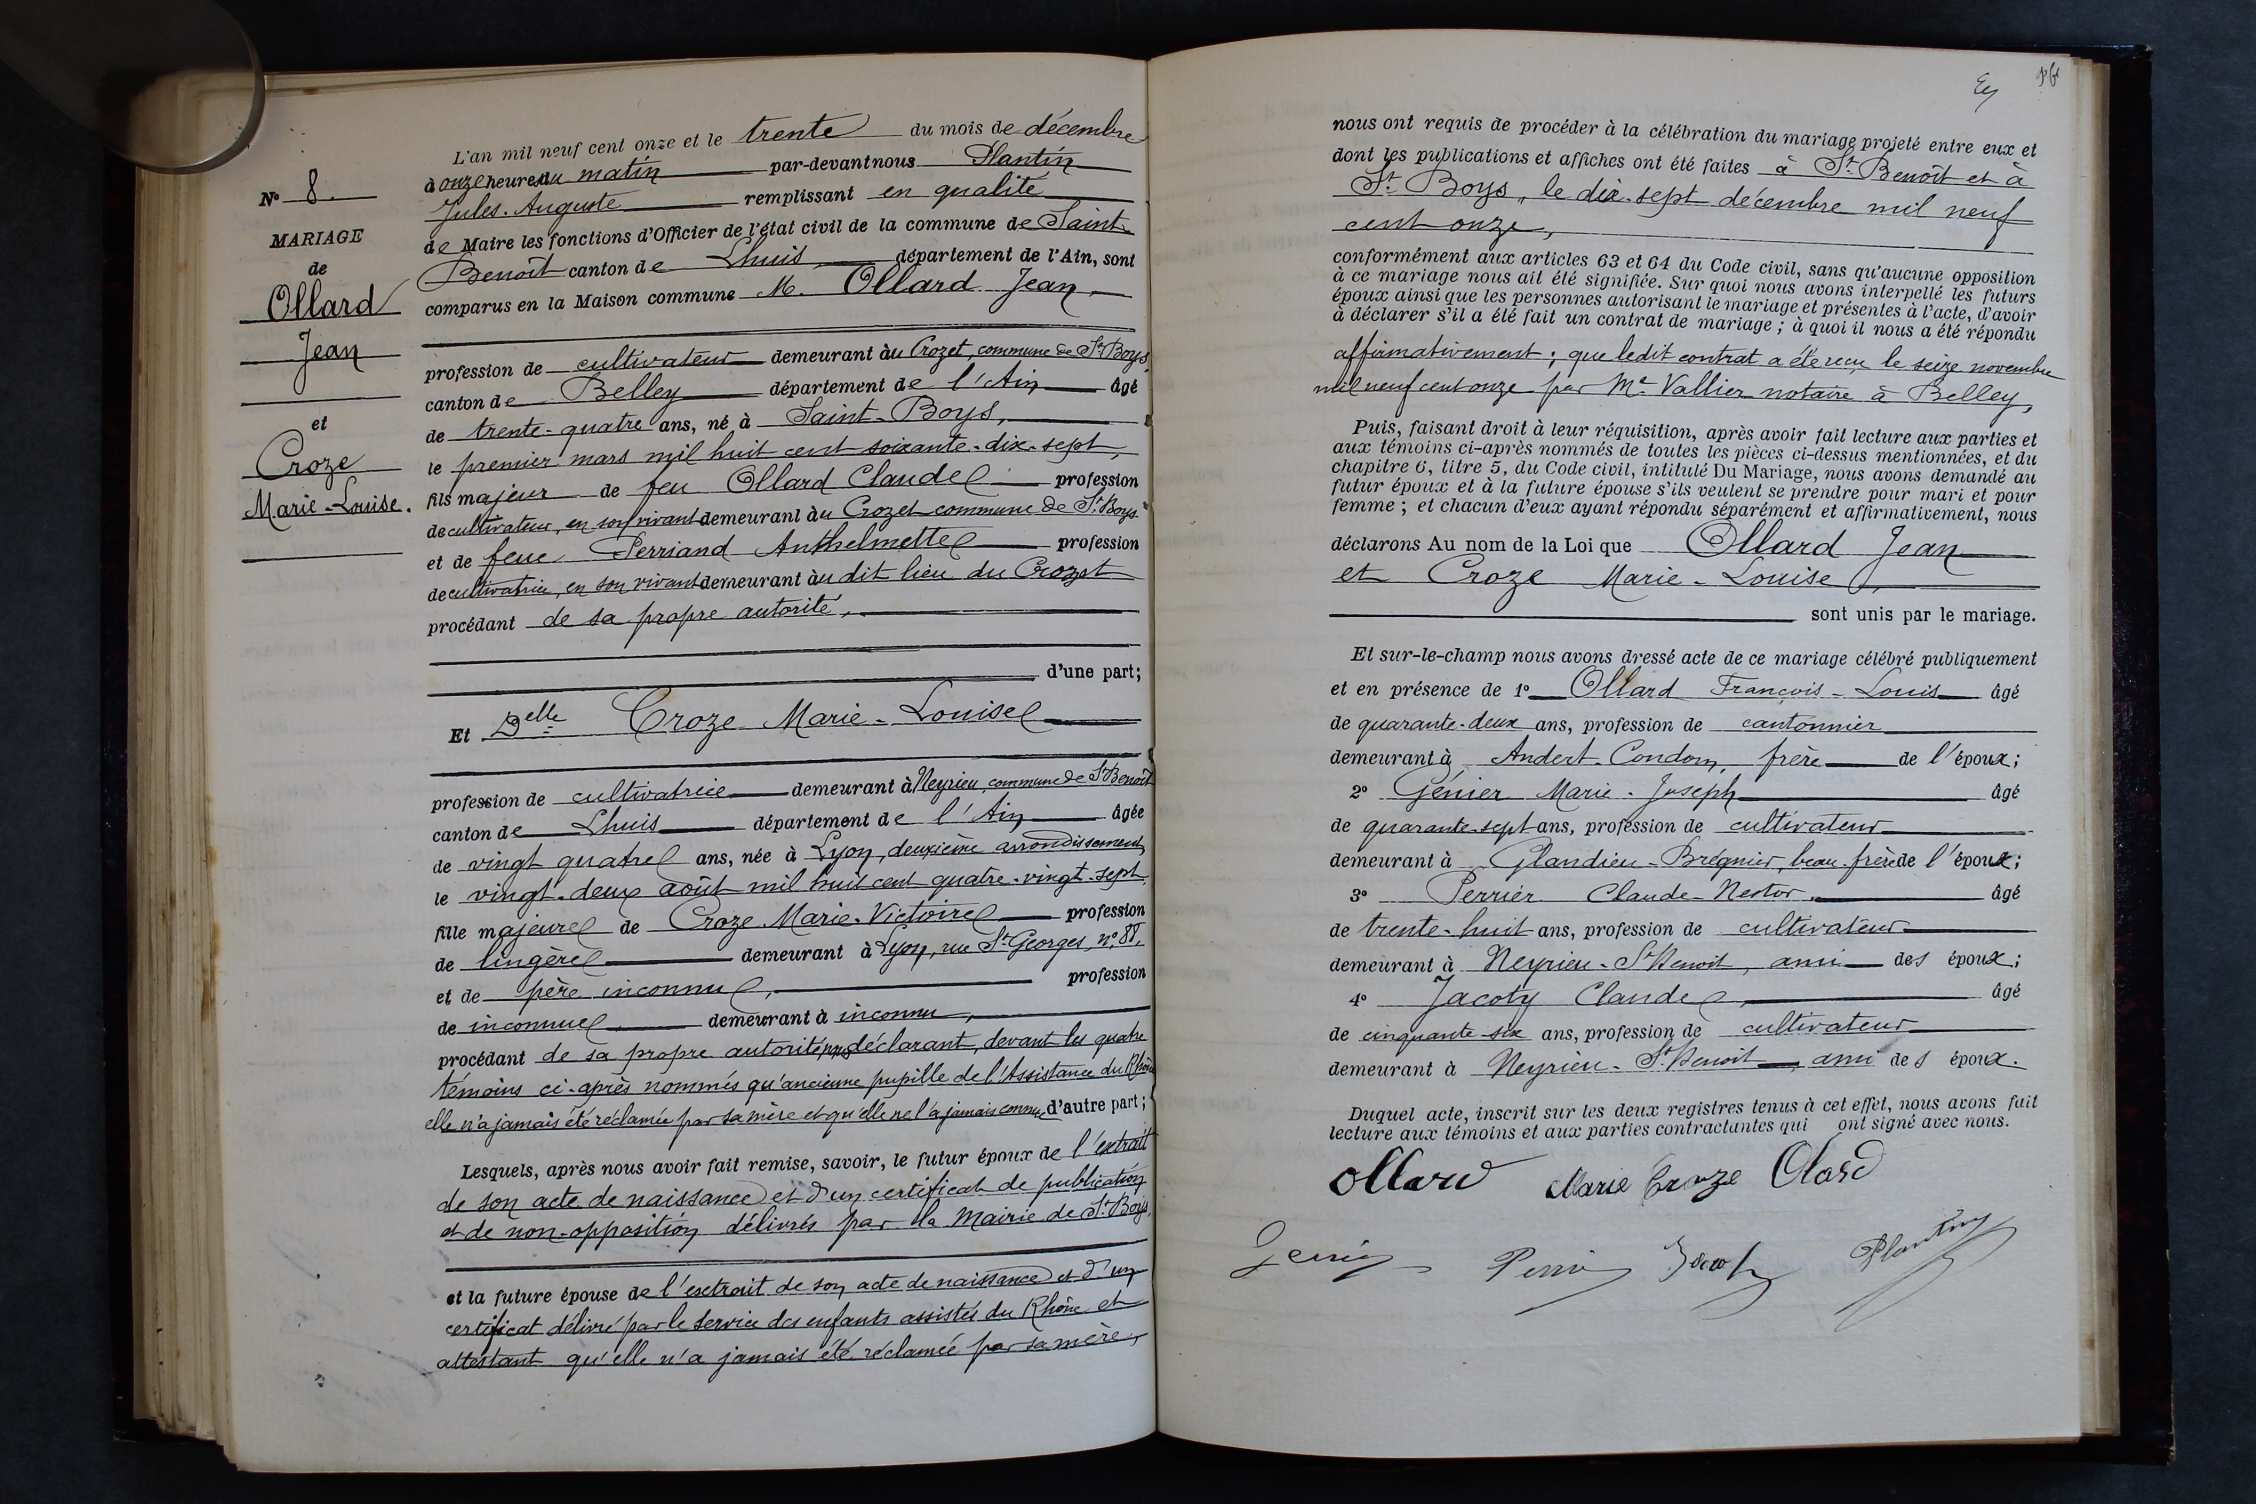 N° 8.
MARIAGE
de
Ollard
Jean
et
Croze
Marie-Louise.
L'an mil neuf cent onze et le trente du mois de décembre
à onze heures du matin par-devant nous Plantin
Jules-Auguste remplissant en qualité
de Maire les fonctions d'Officier de l'état civil de la commune de Saint-
Benoît canton de Lhuis, département de l'Ain, sont
comparus en la Maison commune M. Ollard Jean,
profession de cultivateur demeurant à au Crozet, commune de St Boys,
canton de Belley département de l'Ain âgé
de trente-quatre ans, né à Saint-Boys,
le premier mars mil huit cent soixante-dix-sept,
fils majeur de feu Ollard Claude profession
de cultivateur, en son vivant demeurant à au Crozet commune de St Boys
et de feue Perriand Anthelmette profession
de cultivatrice, en son vivant demeurant à au dit lieu du Crozet
procédant de sa propre autorité,
d'une part;
Et Delle Croze Marie-Louise
profession de cultivatrice demeurant à Neyrieu, commune de St Benoît
canton de Lhuis département de l'Ain âgée
de vingt quatre ans, née à Lyon, deuxième arrondissement,
le vingt-deux août mil huit cent quatre-vingt-sept,
fille majeure de Croze Marie-Victoire profession
de lingère demeurant à Lyon, rue St Georges, n° 88,
et de père inconnu, profession
de inconnue demeurant à inconnu,
procédant de sa propre autorité, nous déclarant, devant les quatre
témoins ci-après nommés qu'ancienne pupille de l'Assistance du Rhône
elle n'a jamais été réclamée par sa mère et qu'elle ne l'a jamais connue, d'autre part;
Lesquels, après nous avoir fait remise, savoir, le futur époux de l'extrait
de son acte de naissance et d'un certificat de publication
et de non-opposition délivrés par la Mairie de St Boys,
et la future épouse de l'extrait de son acte de naissance et d'un
certificat délivré par le service des enfants assistés du Rhône et
attestant qu'elle n'a jamais été réclamée par sa mère,
nous ont requis de procéder à la célébration du mariage projeté entre eux et
dont les publications et affiches ont été faites à St Benoît et à
St Boys, le dix-sept décembre mil neuf
cent onze,
conformément aux articles 63 et 64 du Code civil, sans qu'aucune opposition
à ce mariage nous ait été signifiée. Sur quoi nous avons interpellé les futurs
époux ainsi que les personnes autorisant le mariage et présentes à l'acte, d'avoir
à déclarer s'il a été fait un contrat de mariage; à quoi il nous a été répondu
affirmativement; que ledit contrat a été reçu le seize novembre
mil neuf cent onze par Me Vallier notaire à Belley,
Puis, faisant droit à leur réquisition, après avoir fait lecture aux parties et
aux témoins ci-après nommés de toutes les pièces ci-dessus mentionnées, et du
chapitre 6, titre 5, du Code civil, intitulé Du Mariage, nous avons demandé au
futur époux et à la future épouse s'ils veulent se prendre pour mari et pour
femme; et chacun d'eux ayant répondu séparément et affirmativement, nous
déclarons Au nom de la Loi que Ollard Jean
et Croze Marie-Louise,
sont unis par le mariage.
Et sur-le-champ nous avons dressé acte de ce mariage célébré publiquement
et en présence de 1° Ollard François-Louis âgé
de quarante-deux ans, profession de cantonnier
demeurant à Andert-Condon, frère de l'époux;
2° Génier Marie-Joseph âgé
de quarante-sept ans, profession de cultivateur
demeurant à Glandieu-Brégnier, beau-frère de l'époux;
3° Perrier Claude-Nestor, âgé
de trente-huit ans, profession de cultivateur
demeurant à Neyrieu-St Benoit, ami des époux;
4° Jacoty Claude, âgé
de cinquante-six ans, profession de cultivateur
demeurant à Neyrieu-St Benoit, ami des époux.
Duquel acte, inscrit sur les deux registres tenus à cet effet, nous avons fait
lecture aux témoins et aux parties contractantes qui ont signé avec nous.
Ollard Marie Croze Olard
Genier Perrier Jacoty Plantin